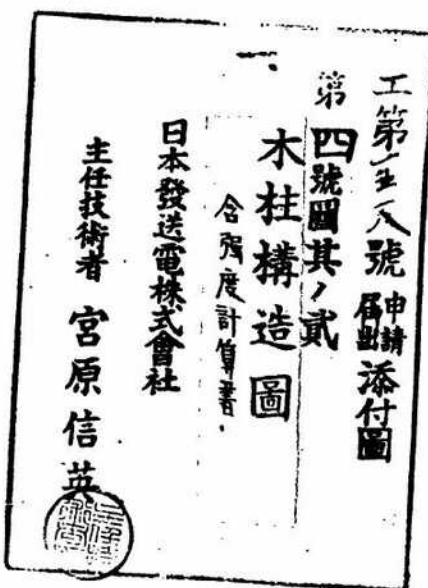 工第一五八號申請届出添付圖
第四號圖其ノ貳
一、木柱構造圖
含强度計算書.
日本發送電株式會社
主任技術者 宮原信英